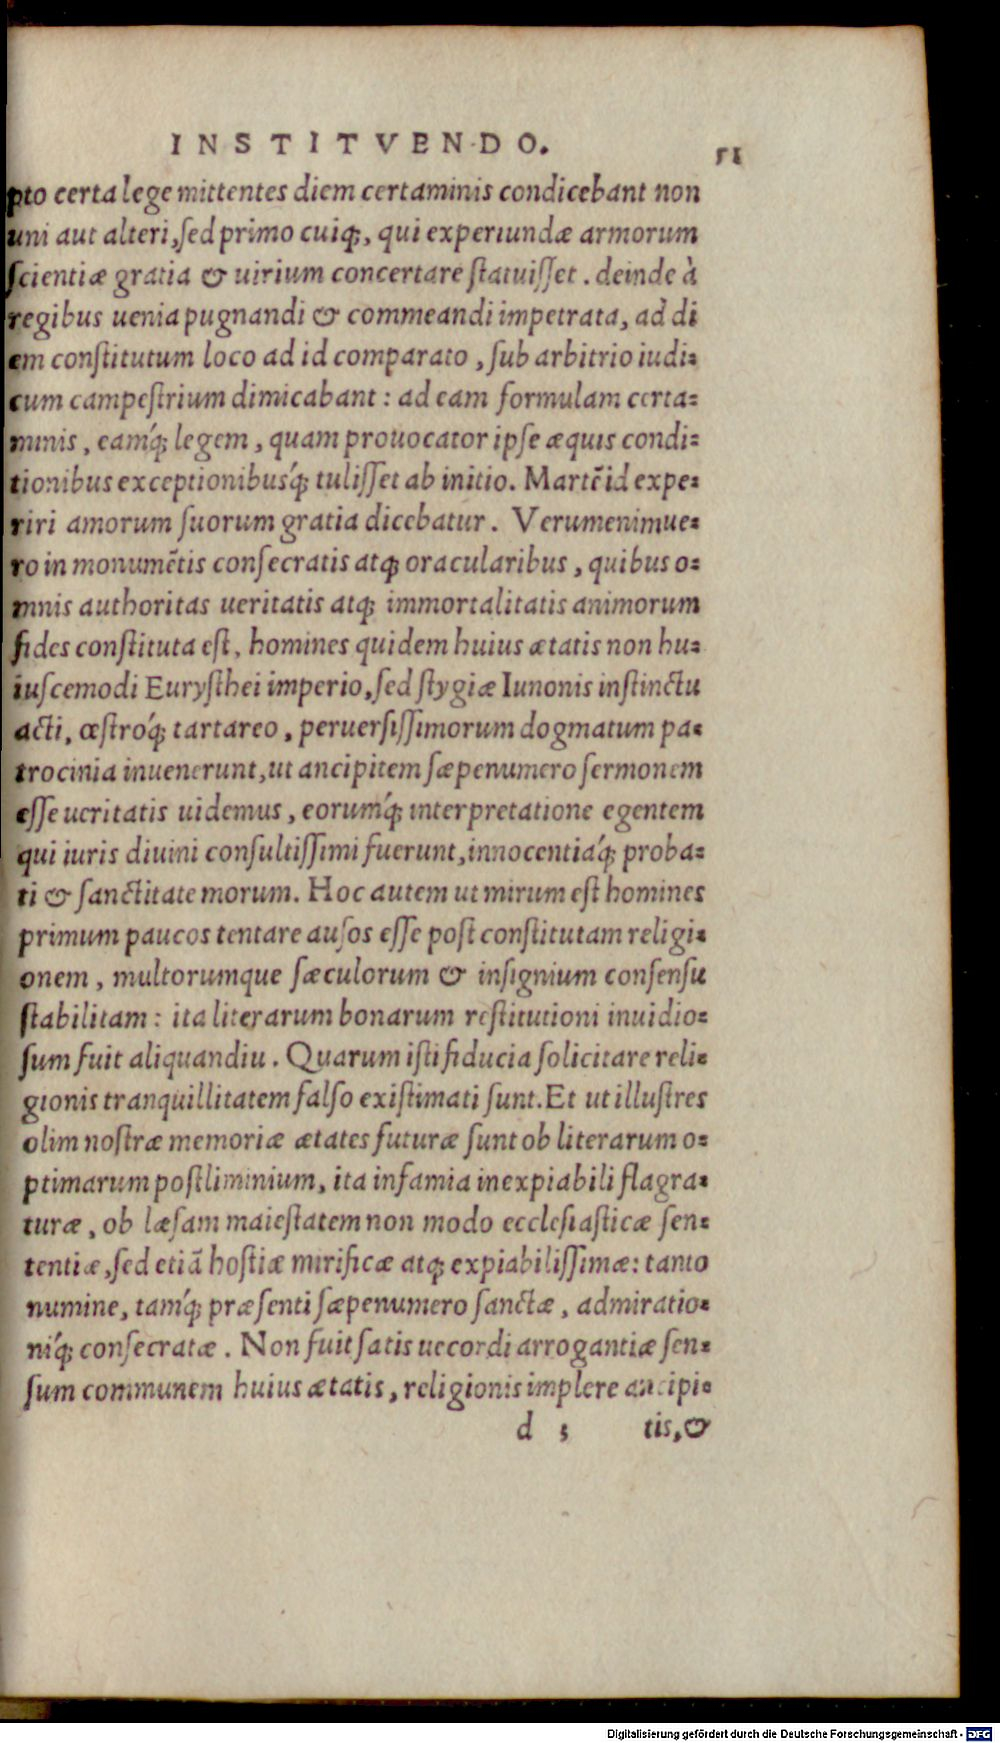 INSTITVENDO. 51
pto certa lege mittentes diem certaminis condicebant non
uni aut alteri, sed primo cuiq;, qui experiundæ armorum
scientiæ gratia & uirium concertare statuisset. deinde à
regibus uenia pugnandi & commeandi impetrata, ad di
em constitutum loco ad id comparato, sub arbitrio iudi=
cum campestrium dimicabant: ad eam formulam certa=
minis, eamq́; legem, quam prouocator ipse æquis condi=
tionibus exceptionibusq́; tulisset ab initio. Martẽ id expe=
riri amorum suorum gratia dicebatur. Verumenimue=
ro in monumẽtis consecratis atq; oracularibus, quibus o=
mnis authoritas ueritatis atq; immortalitatis animorum
fides constituta est, homines quidem huius ætatis non hu=
iuscemodi Eurysthei imperio, sed stygiæ Iunonis instinctu
acti, œstroq́; tartareo, peruersissimorum dogmatum pa=
trocinia inuenerunt, ut ancipitem sæpenumero sermonem
esse ueritatis uidemus, eorumq́; interpretatione egentem
qui iuris diuini consultissimi fuerunt, innocentiaq́; proba=
ti & sanctitate morum. Hoc autem ut mirum est homines
primum paucos tentare ausos esse post constitutam religi=
onem, multorumque sæculorum & insignium consensu
stabilitam: ita literarum bonarum restitutioni inuidio=
sum fuit aliquandiu. Quarum isti fiducia solicitare reli=
gionis tranquillitatem falso existimati sunt. Et ut illustres
olim nostræ memoriæ ætates futuræ sunt ob literarum o=
ptimarum postliminium, ita infamia inexpiabili flagra=
turæ, ob læsam maiestatem non modo ecclesiasticæ sen=
tentiæ, sed etiã hostiæ mirificæ atq; expiabilissimæ: tanto
numine, tamq́; præsenti sæpenumero sanctæ, admiratio=
niq́; consecratæ. Non fuit satis uecordi arrogantiæ sen=
sum communem huius ætatis, religionis implere ancipi=
d 3 tis, &
Digitalisierung gefördert durch die Deutsche Forschungsgemeinschaft - DFG